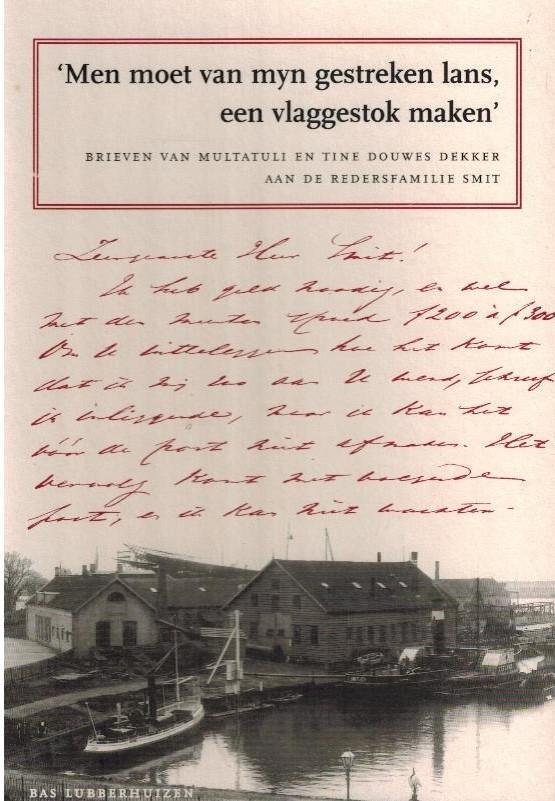 ‘Men moet van myn gestreken lans,
een vlaggestok maken’
BRIEVEN VAN MULTATULI EN TINE DOUWES DEKKER
AAN DE REDERSFAMILIE SMIT
Zeergeachte Heer Smit!
Ik heb geld noodig, en wel
met den meesten spoed f200 à f300
Om U uitteleggen hoe het komt
dat ik mij zoo aan U wend, schreef
ik inliggende, maar ik kan het
vóór de post niet afmaken. Het
vervolg komt met volgende
post, en ik kan niet wachten.
BAS LUBBERHUIZEN